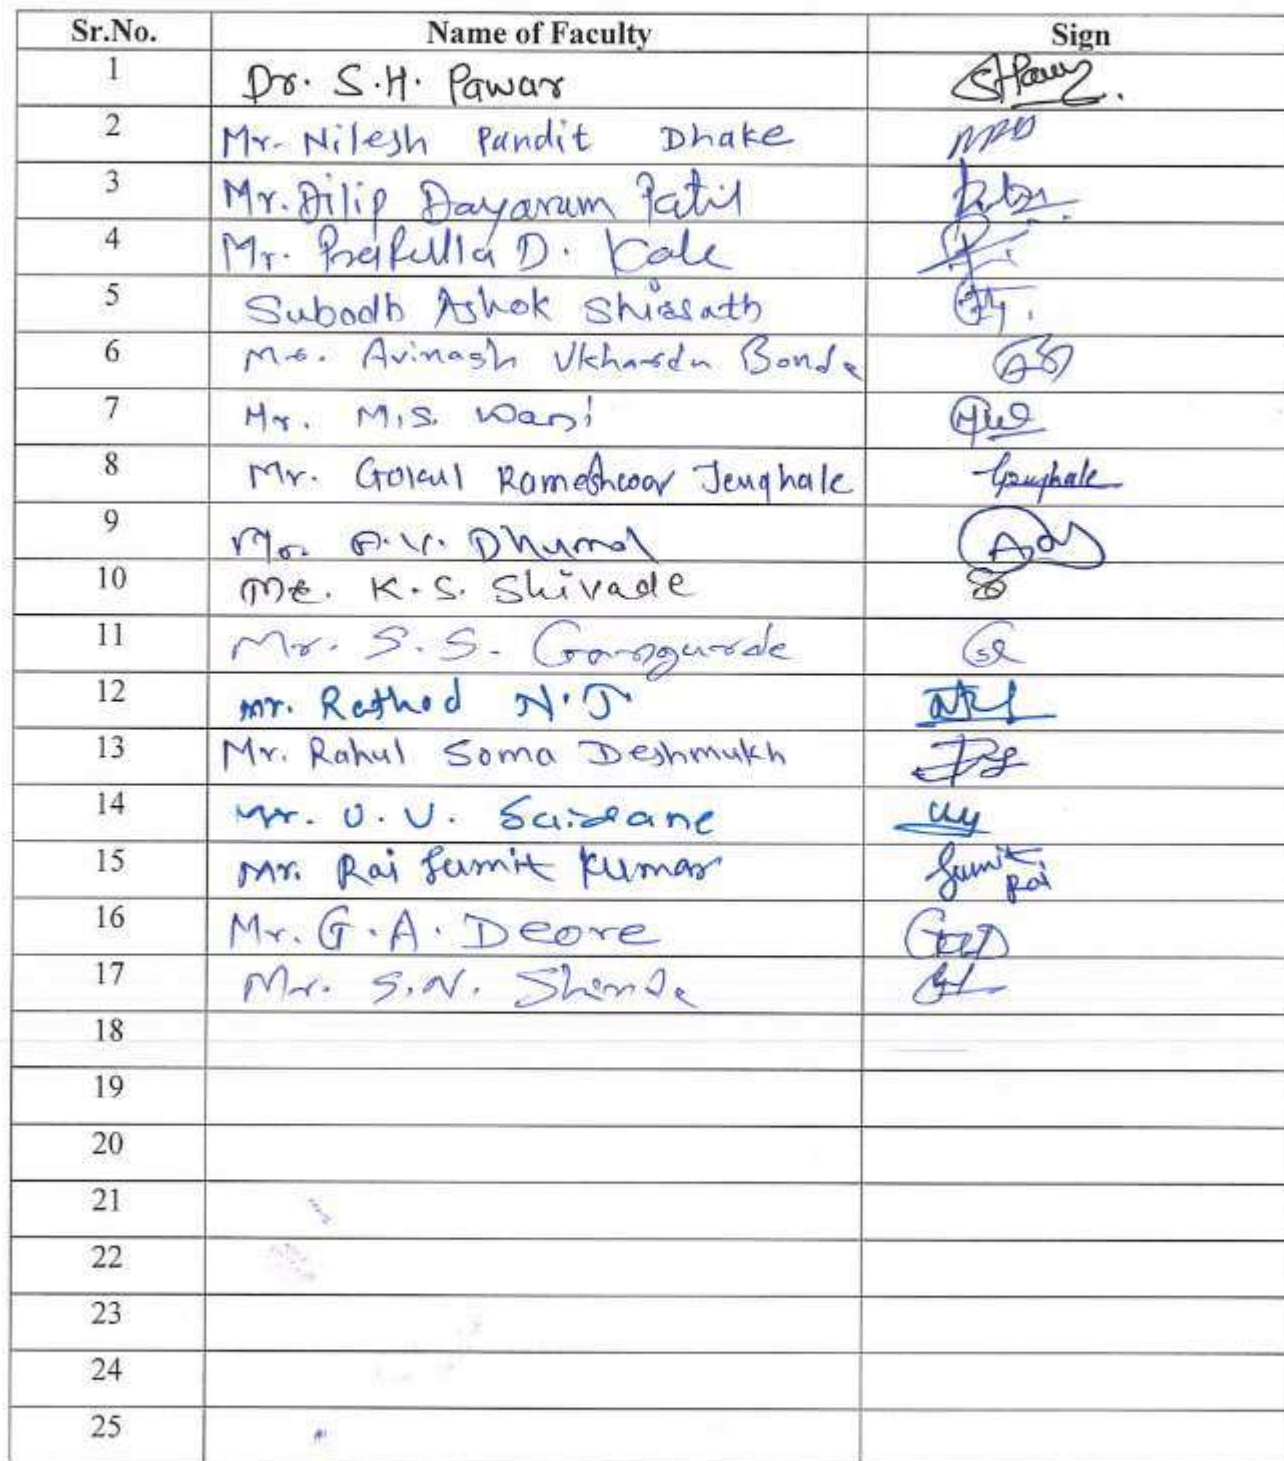 Sr.No. Name of Faculty Sign
1 Dr. S.H. Pawar
2 Mr. Nilesh Pandit Dhake
3 Mr. Dilip Dayaram Patil
4 Mr. Prafulla D. Kale
5 Subodh Ashok Shirsath
6 Mr. Avinash Ukhardu Bonde
7 Mr. M.S. Wani
8 Mr. Gokul Rameshwar Jenghale
9 Mr. A.V. Dhumal
10 Mr. K.S. Shivade
11 Mr. S.S. Gangurde
12 mr. Rathod N.J
13 Mr. Rahul Soma Deshmukh
14 Mr. U.V.
15 Mr. Rai Sumit Kumar Sumit Rai
16 Mr. G.A. Deore
17 Mr. S.N. Shinde
18
19
20
21
22
23
24
25